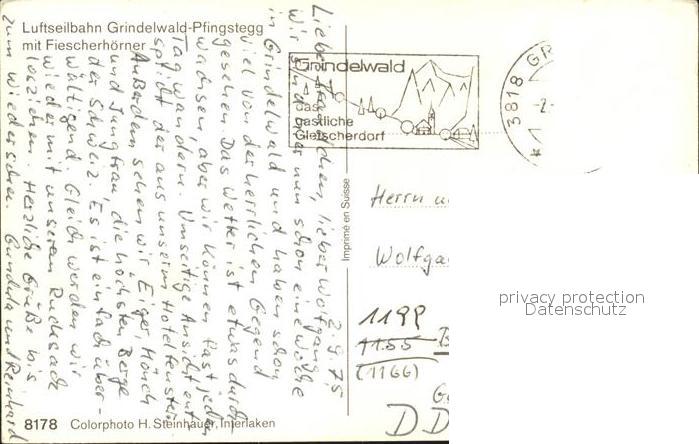 Luftseilbahn Grindelwald-Pfingstegg
mit Fiescherhörner
Grindelwald
das
gastliche
Gletscherdorf
3818 GR
-2.
1
2.9.75
Liebe lieber Wolfgang,
wir sind hier nun schon eine Woche
in Grindelwald und haben schon
viel von der herrlichen Gegend
gesehen. Das Wetter ist etwas durch
wachsen, aber wir können fast jeden
Tag wandern. Umseitige Ansicht ent-
spricht der aus unserm Hotelfenster.
Außerdem sehen wir Eiger, Mönch
und Jungfrau, die höchsten Berge
der Schweiz. Es ist einfach über-
wältigend. Gleich werden wir
wieder mit unserem Rucksack
losziehen. Herzliche Grüße bis
zum Wiedersehen. Gundula und Reinhard
Imprimé en Suisse
Herrn u
Wolfga
1199
1155 B
(1166)
DD
privacy protection
Datenschutz
8178 Colorphoto H. Steinhauer, Interlaken